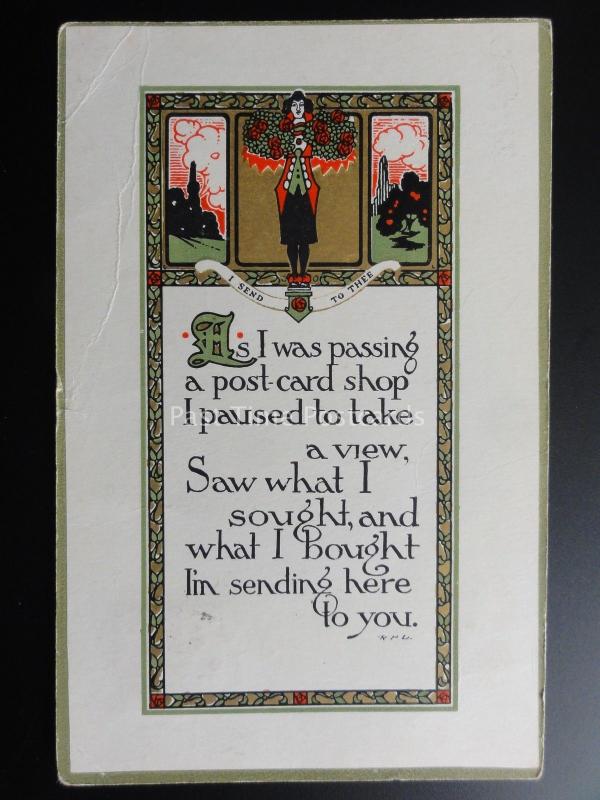 I SEND TO THEE
As I was passing
a post-card shop
I paused to take
a view,
Saw what I
sought, and
what I bought
I'm sending here
to you.
Past Time Postcards